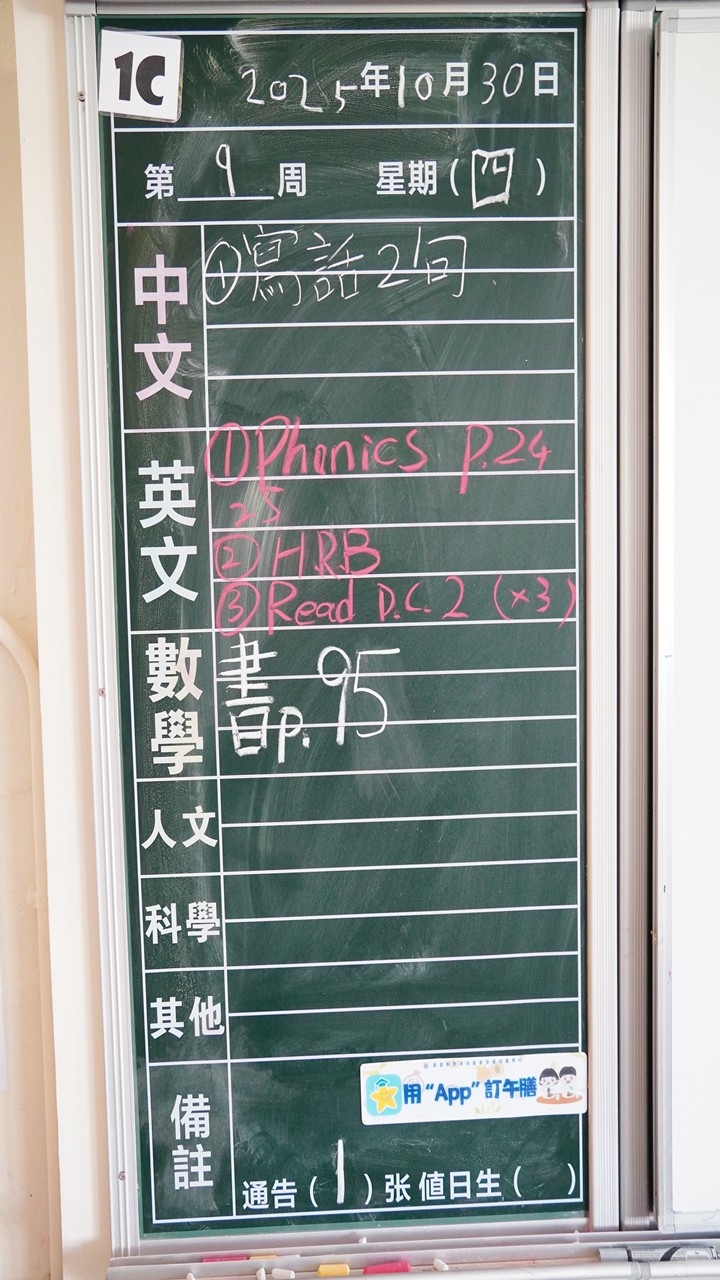 1C
2025年10月30日
第 9 周 星期(四)
中文
①寫話2句
英文
①Phonics P.24
25
②H.R.B
③Read D.C. 2 (×3)
數學
書p.95
人文
科學
其他
備註
用“App”訂午膳
通告(1)张 值日生( )